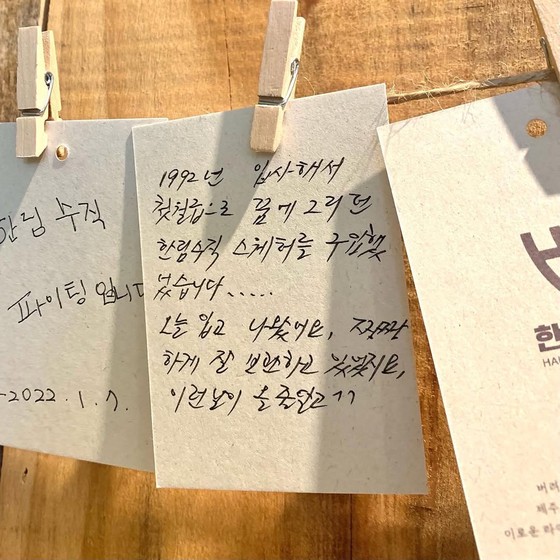 한림수직
파이팅 입니다
2022. 1. 7.
1992년 입사해서
첫월급으로 꿈에 그리던
한림수직 스웨터를 구입했
었습니다.....
오늘 입고 나왔어요, 짜짠
하게 잘 보관하고 있었지요,
이런날이 올줄알고ㄱㄱ
한
HA
버려
제주
이로운